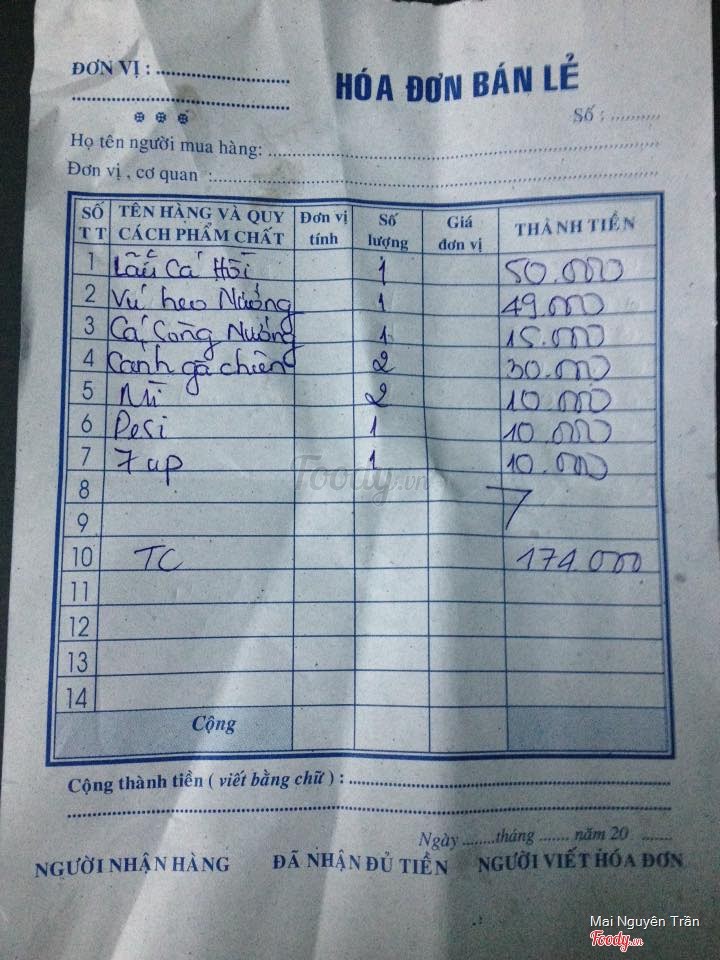 ĐƠN VỊ : ........................
HÓA ĐƠN BÁN LẺ
Số : ..........
Họ tên người mua hàng: ........................
Đơn vị , cơ quan : ........................
SỐ TT TÊN HÀNG VÀ QUY CÁCH PHẨM CHẤT Đơn vị tính Số lượng Giá đơn vị THÀNH TIỀN
1 Lẩu Cá Hồi 1 50.000
2 Vú heo Nướng 1 49.000
3 Cá Sòng Nướng 1 15.000
4 Canh gà chiên 2 30.000
5 Mì 2 10.000
6 Pesi 1 10.000
7 7 up 1 10.000
8
9
10 TC 174.000
11
12
13
14
Cộng
Cộng thành tiền ( viết bằng chữ ) : ........................
Ngày ........ tháng ....... năm 20 .......
NGƯỜI NHẬN HÀNG ĐÃ NHẬN ĐỦ TIỀN NGƯỜI VIẾT HÓA ĐƠN
Foody.vn
Mai Nguyên Trần
Foody.vn